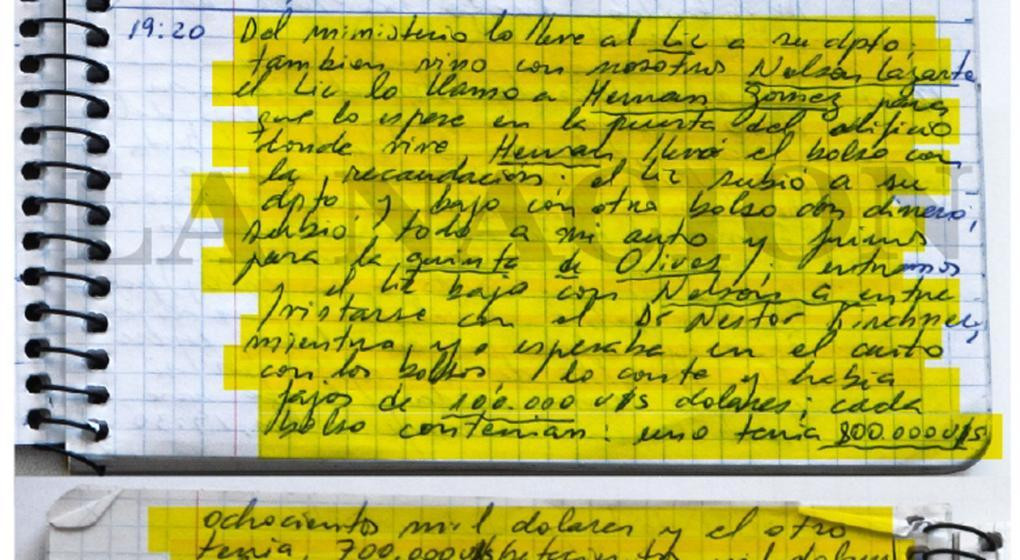 19:20 Del miministerio lo lleve al Lic a su dpto;
tambien vino con nosotros Nelson Lazarte
el Lic lo llamo a Hernan Gomez para
que lo espere en la puerta del edificio
donde vive Hernan llevó el bolso con
la recaudación; el Lic subió a su
dpto y bajo con otro bolso con dinero;
subió todo a mi auto y fuimos
para la quinta de Olivos; entramos
y el Lic bajo con Nelson a entre
/vistarse con el Dr Nestor Kirchner;
mientra yo esperaba en el auto
con los bolsos, lo conte y habia
fajos de 100.000 u/s dolares; cada
bolso contenian: uno tenia 800.000 u/s
LA NACION
ochociento mil dolares y el otro
tenia 700.000 u/s setecientos mil dolares